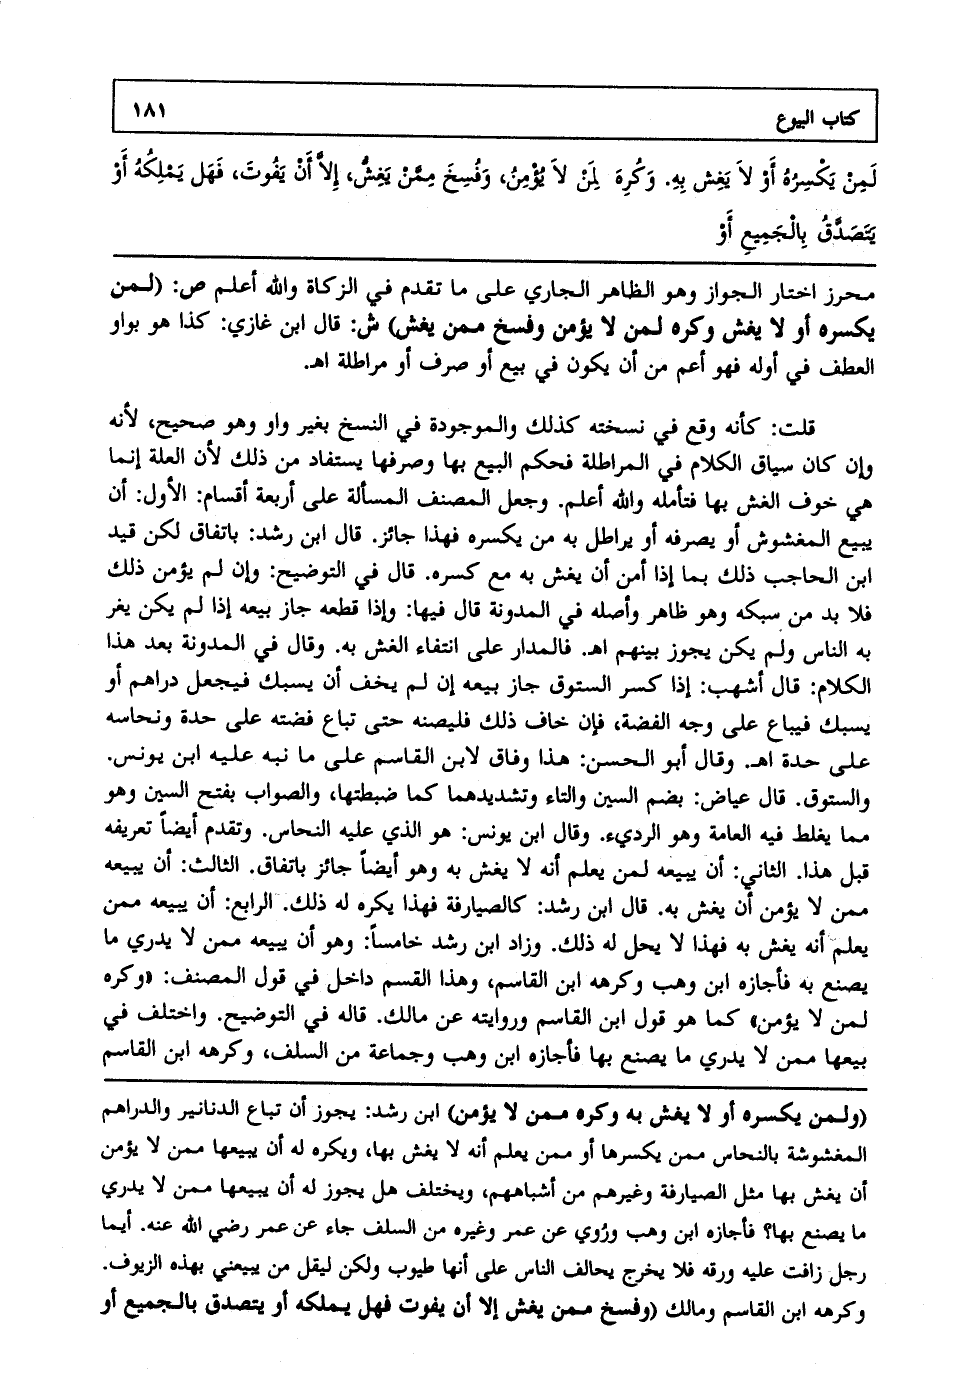 كتاب البيوع ١٨١
لَمِنْ يَكْسِرُهُ أَوْ لاَ يَغِش بِهِ. وَكُرِهَ لِمَنْ لاَ يُؤْمِنُ، وَفُسِخَ مِمَّنْ يَغِشُّ، إِلاَّ أَنْ يَفُوتَ، فَهَل يَمْلِكُهُ أَوْ
يَتَصَدَّقُ بِالْجَمِيعِ أَوْ
محرز اختار الجواز وهو الظاهر الجاري على ما تقدم في الزكاة والله أعلم ص: (لمن
يكسره أو لا يغش وكره لمن لا يؤمن وفسخ ممن يغش) ش: قال ابن غازي: كذا هو بواو
العطف في أوله فهو أعم من أن يكون في بيع أو صرف أو مراطلة اهـ.
قلت: كأنه وقع في نسخته كذلك والموجودة في النسخ بغير واو وهو صحيح، لأنه
وإن كان سياق الكلام في المراطلة فحكم البيع بها وصرفها يستفاد من ذلك لأن العلة إنما
هي خوف الغش بها فتأمله والله أعلم. وجعل المصنف المسألة على أربعة أقسام: الأول: أن
يبيع المغشوش أو يصرفه أو يراطل به من يكسره فهذا جائز. قال ابن رشد: باتفاق لكن قيد
ابن الحاجب ذلك بما إذا أمن أن يغش به مع كسره. قال في التوضيح: وإن لم يؤمن ذلك
فلا بد من سبكه وهو ظاهر وأصله في المدونة قال فيها: وإذا قطعه جاز بيعه إذا لم يكن يغر
به الناس ولم يكن يجوز بينهم اهـ. فالمدار على انتفاء الغش به. وقال في المدونة بعد هذا
الكلام: قال أشهب: إذا كسر الستوق جاز بيعه إن لم يخف أن يسبك فيجعل دراهم أو
يسبك فيباع على وجه الفضة، فإن خاف ذلك فليصنه حتى تباع فضته على حدة ونحاسه
على حدة اهـ. وقال أبو الحسن: هذا وفاق لابن القاسم على ما نبه عليه ابن يونس.
والستوق. قال عياض: بضم السين والتاء وتشديدهما كما ضبطتها، والصواب بفتح السين وهو
مما يغلط فيه العامة وهو الرديء. وقال ابن يونس: هو الذي عليه النحاس. وتقدم أيضاً تعريفه
قبل هذا. الثاني: أن يبيعه لمن يعلم أنه لا يغش به وهو أيضاً جائز باتفاق. الثالث: أن يبيعه
ممن لا يؤمن أن يغش به. قال ابن رشد: كالصيارفة فهذا يكره له ذلك. الرابع: أن يبيعه ممن
يعلم أنه يغش به فهذا لا يحل له ذلك. وزاد ابن رشد خامساً: وهو أن يبيعه ممن لا يدري ما
يصنع به فأجازه ابن وهب وكرهه ابن القاسم، وهذا القسم داخل في قول المصنف: «وكره
لمن لا يؤمن» كما هو قول ابن القاسم وروايته عن مالك. قاله في التوضيح. واختلف في
بيعها ممن لا يدري ما يصنع بها فأجازه ابن وهب وجماعة من السلف، وكرهه ابن القاسم
(ولمن يكسره أو لا يغش به وكره ممن لا يؤمن) ابن رشد: يجوز أن تباع الدنانير والدراهم
المغشوشة بالنحاس ممن يكسرها أو ممن يعلم أنه لا يغش بها، ويكره له أن يبيعها ممن لا يؤمن
أن يغش بها مثل الصيارفة وغيرهم من أشباههم، ويختلف هل يجوز له أن يبيعها ممن لا يدري
ما يصنع بها؟ فأجازه ابن وهب ورُوي عن عمر وغيره من السلف جاء عن عمر رضي الله عنه. أيما
رجل زافت عليه ورقه فلا يخرج يحالف الناس على أنها طيوب ولكن ليقل من يبيعني بهذه الزيوف.
وكرهه ابن القاسم ومالك (وفسخ ممن يغش إلا أن يفوت فهل يملكه أو يتصدق بالجميع أو